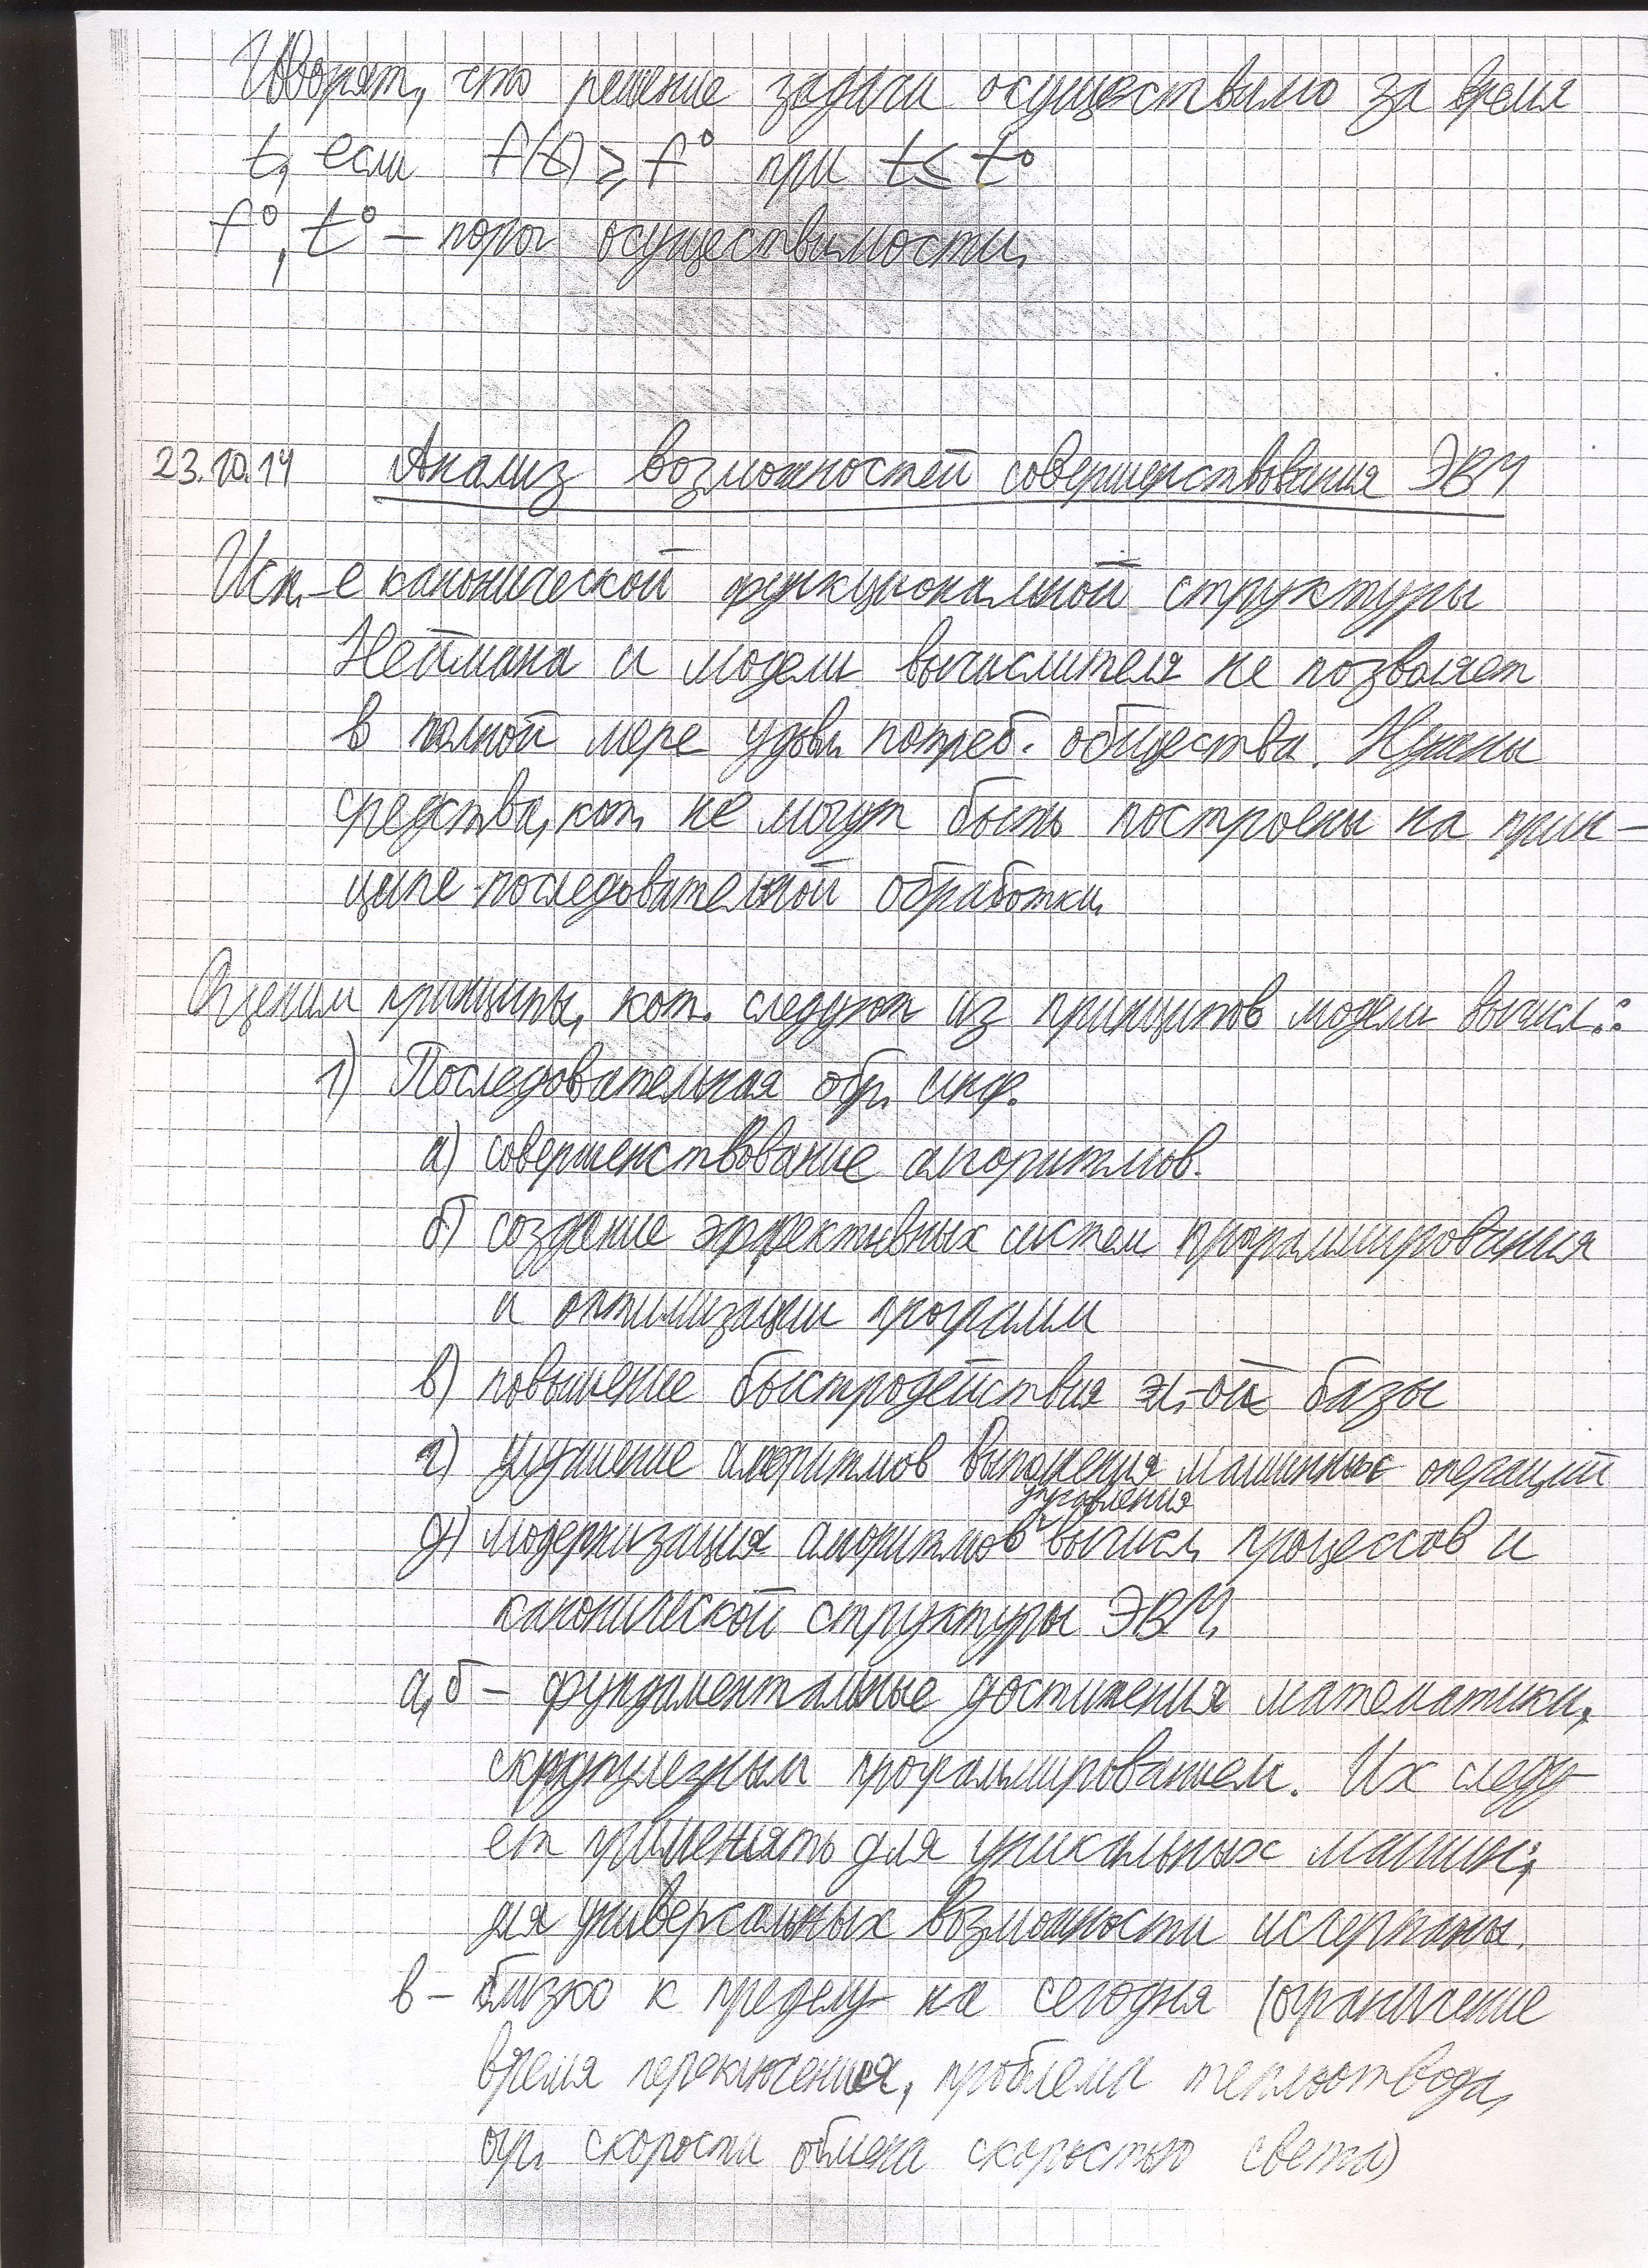 Говорят, что решение задачи осуществимо за время
t, если f(t) ⩾ f° при t ⩽ t°
f°, t° – порог осуществимости.
23.10.14 Анализ возможностей совершенствования ЭВМ
Исп.-е канонической функциональной структуры
Неймана и модели вычислителя не позволяет
в полной мере удовл. потреб. общества. Нужны
средства, кот. не могут быть построены на прин-
ципе последовательной обработки.
Оценим принципы, кот. следуют из принципов модели вычисл.:
1) Последовательная обр. инф.
а) совершенствование алгоритмов.
б) создание эффективных систем программирования
и оптимизации программ
в) повышение быстродействия эл.-ой базы
г) улучшение алгоритмов выполнения машинных операций
управления
д) модернизация алгоритмов вычисл. процессов и
канонической структуры ЭВМ.
а, б – фундаментальные достижения математики,
скрупулезным программированием. Ихследу-
ет применять для уникальных машин;
для универсальных возможности исчерпаны.
в – близко к пределу на сегодня (ограничение
время переключения, проблема теплоотвода,
огр. скорости обмена скоростью света)